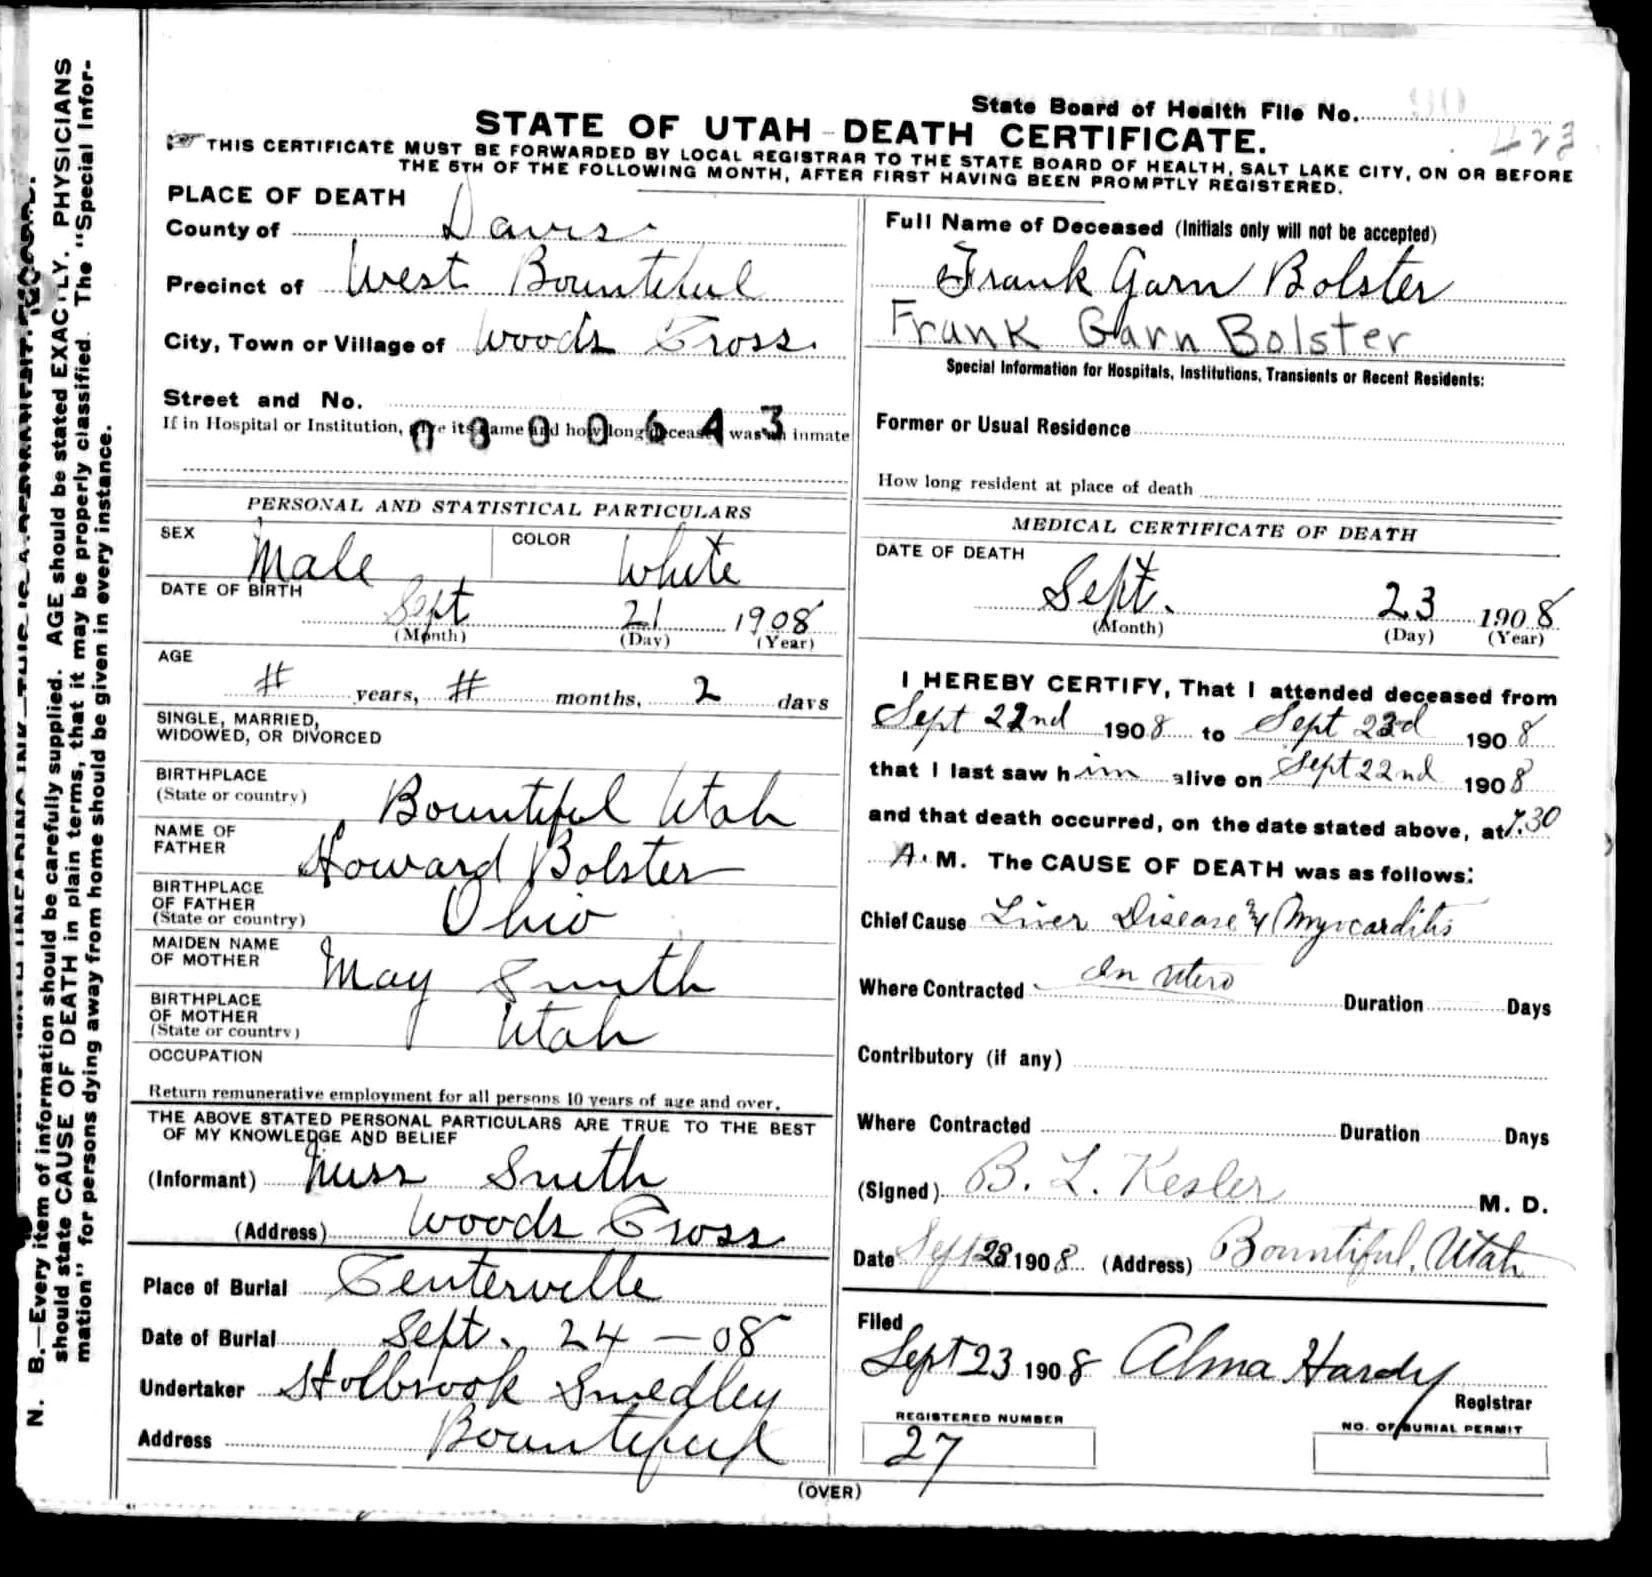 State Board of Health File No. 90
423
STATE OF UTAH - DEATH CERTIFICATE.
THIS CERTIFICATE MUST BE FORWARDED BY LOCAL REGISTRAR TO THE STATE BOARD OF HEALTH, SALT LAKE CITY, ON OR BEFORE
THE 5TH OF THE FOLLOWING MONTH, AFTER FIRST HAVING BEEN PROMPTLY REGISTERED.
PLACE OF DEATH
County of Davis
Precinct of West Bountiful
City, Town or Village of Woods Cross
Street and No.
If in Hospital or Institution, give its name and how long deceased was an inmate
0800643
PERSONAL AND STATISTICAL PARTICULARS
SEX Male COLOR White
DATE OF BIRTH
Sept 21 1908
(Month) (Day) (Year)
AGE
# years, # months, 2 days
SINGLE, MARRIED,
WIDOWED, OR DIVORCED
BIRTHPLACE
(State or country) Bountiful Utah
NAME OF
FATHER Howard Bolster
BIRTHPLACE
OF FATHER
(State or country) Ohio
MAIDEN NAME
OF MOTHER May Smith
BIRTHPLACE
OF MOTHER
(State or country) Utah
OCCUPATION
Return remunerative employment for all persons 10 years of age and over.
THE ABOVE STATED PERSONAL PARTICULARS ARE TRUE TO THE BEST
OF MY KNOWLEDGE AND BELIEF
(Informant) Smith
(Address) Woods Cross
Place of Burial Centerville
Date of Burial Sept. 24 - 08
Undertaker Holbrook Smedley
Address Bountiful
Full Name of Deceased (Initials only will not be accepted)
Frank Garn Bolster
Frank Garn Bolster
Special Information for Hospitals, Institutions, Transients or Recent Residents:
Former or Usual Residence
How long resident at place of death
MEDICAL CERTIFICATE OF DEATH
DATE OF DEATH
Sept. 23 1908
(Month) (Day) (Year)
I HEREBY CERTIFY, That I attended deceased from
Sept 22nd 1908 to Sept 23d 1908
that I last saw him alive on Sept 22nd 1908
and that death occurred, on the date stated above, at 7.30
A. M. The CAUSE OF DEATH was as follows:
Chief Cause Liver Disease & Myocarditis
Where Contracted In Utero Duration Days
Contributory (if any)
Where Contracted Duration Days
(Signed) B. L. Kesler M. D.
Date Sept 23 1908 (Address) Bountiful, Utah
Filed
Sept 23 1908 Alma Hardy
Registrar
REGISTERED NUMBER
27
NO. OF BURIAL PERMIT
(OVER)
N. B.—Every item of information should be carefully supplied. AGE should be stated EXACTLY. PHYSICIANS
should state CAUSE OF DEATH in plain terms, that it may be properly classified. The "Special Infor-
mation" for persons dying away from home should be given in every instance.